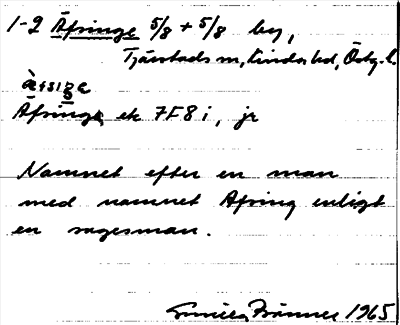 1-2 Äfsinge 5/8 + 5/8 by,
Tjärstads sn, Kinda hd, Östg. l.
Äfsinge, ek 7F8i, jr
Namnet efter en man
med namnet Afsing enligt
en sagesman.
Gunilla Brännes 1965